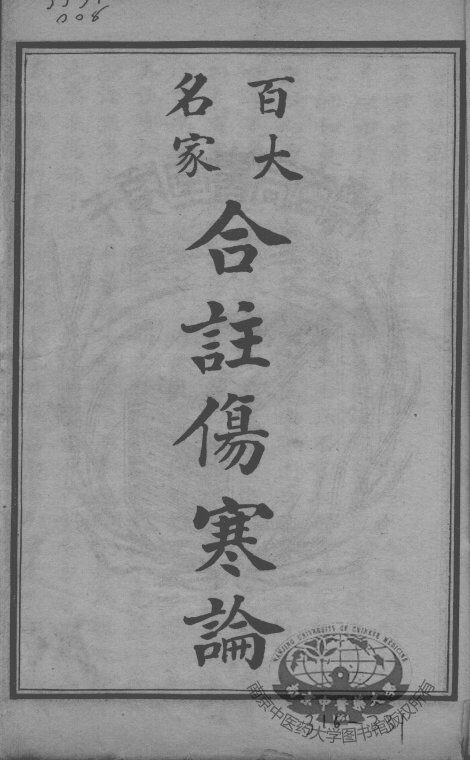 百大
名家
合註傷寒論
NANJING UNIVERSITY OF CHINESE MEDICINE
南京中醫藥大學
南京中医药大学图书馆版权所有
008